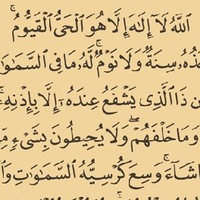 ٱللَّهُ لَآ إِلَٰهَ إِلَّا هُوَ ٱلْحَىُّ ٱلْقَيُّومُ ۚ
خُذُهُۥ سِنَةٌ وَلَا نَوْمٌ ۚ لَّهُۥ مَا فِى ٱلسَّمَٰوَ
ن ذَا ٱلَّذِى يَشْفَعُ عِندَهُۥٓ إِلَّا بِإِذْنِهِۦ ۚ
وَمَا خَلْفَهُمْ ۖ وَلَا يُحِيطُونَ بِشَىْءٍ مِّ
شَآءَ ۚ وَسِعَ كُرْسِيُّهُ ٱلسَّمَٰوَٰتِ وَٱلْ